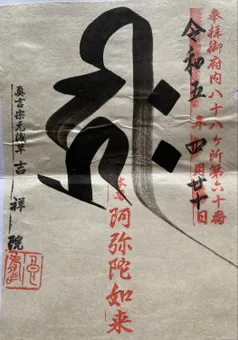 奉拝御府内八十八ヶ所第六十番
令和五年四月廿十日
𑖮𑖿𑖨𑖱𑖾
本尊阿弥陀如来
真言宗元浅草吉祥院